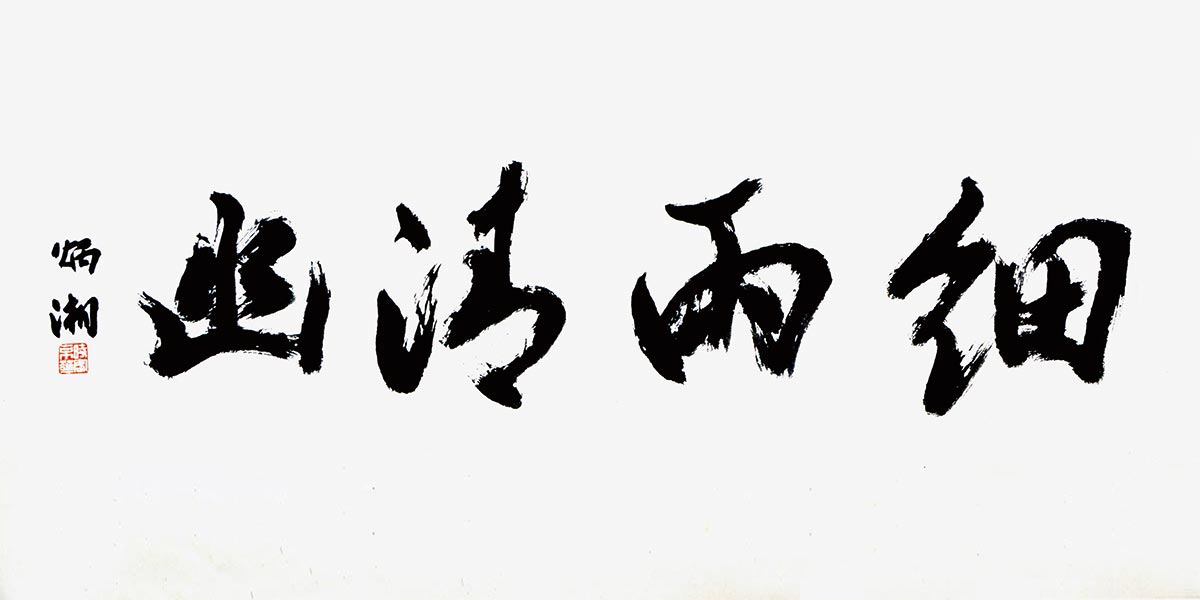 细雨清幽
炳湘